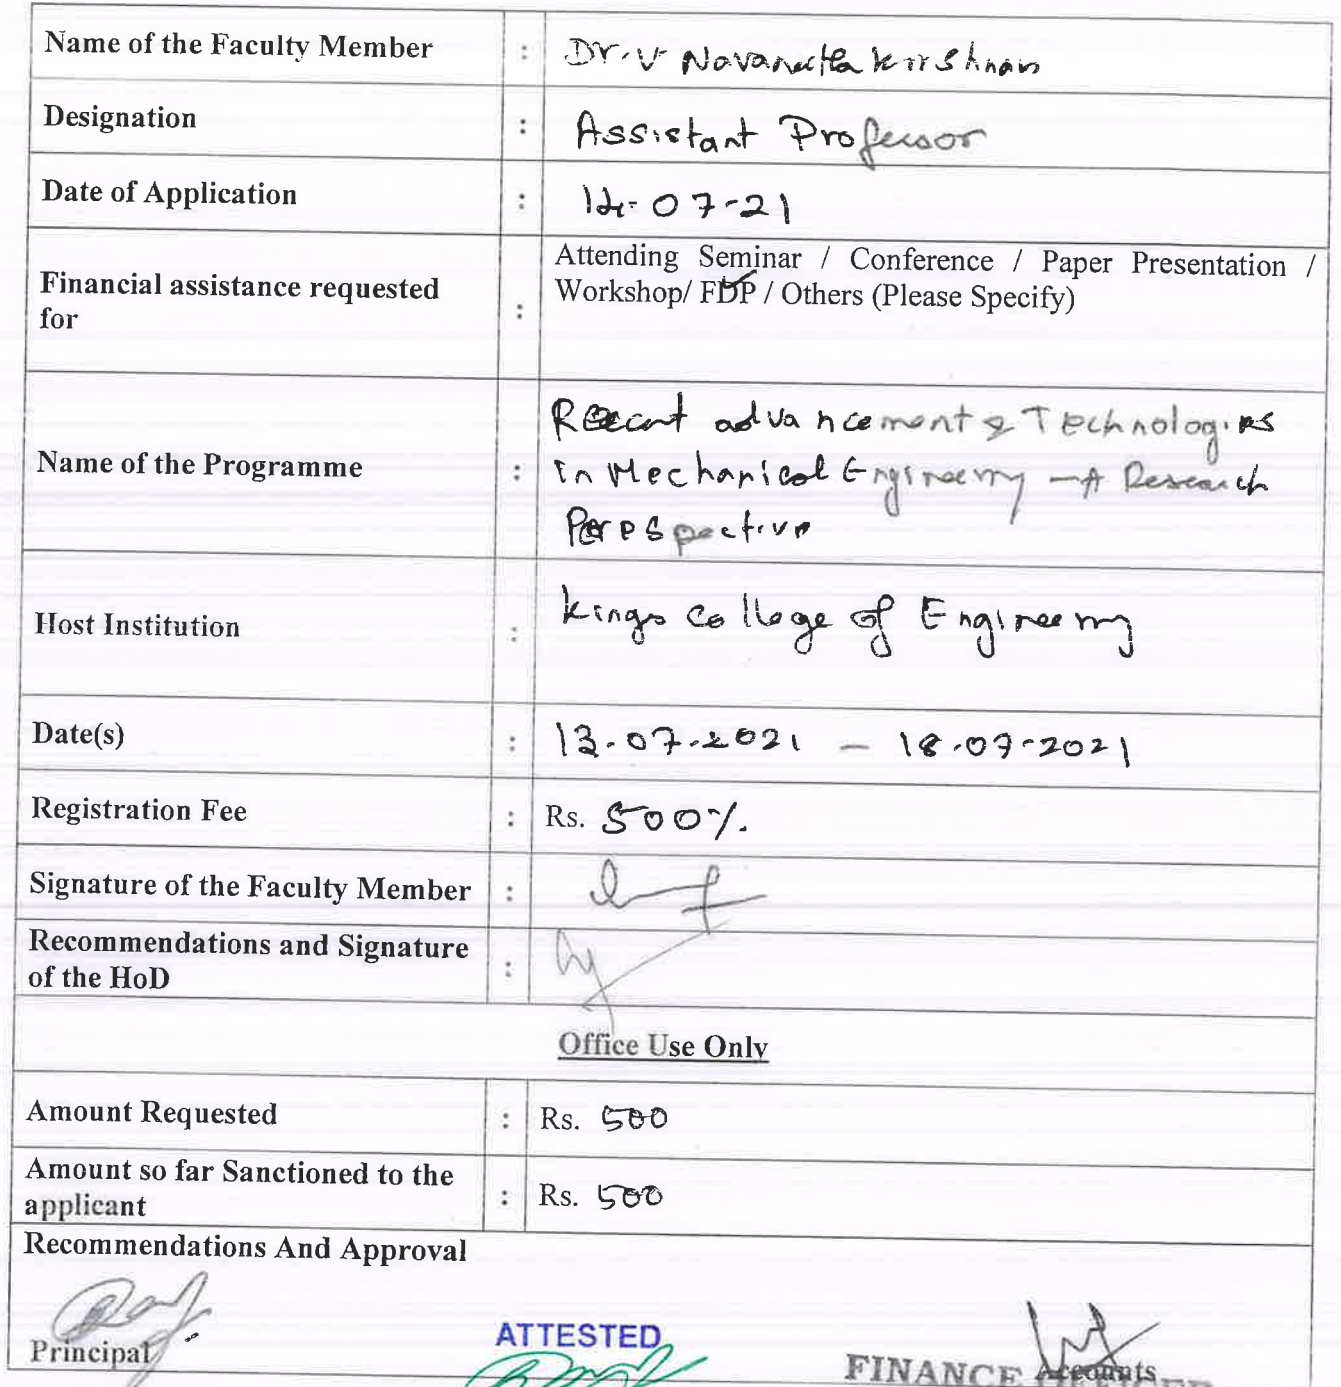 Name of the Faculty Member : Dr. V Navaneetha Krishnan
Designation : Assistant Professor
Date of Application : 14-07-21
Financial assistance requested for : Attending Seminar / Conference / Paper Presentation /
Workshop/ FDP / Others (Please Specify)
Name of the Programme : Recent advancement & Technologies
in Mechanical Engineering - A Research
Perespective
Host Institution : Kings College of Engineering
Date(s) : 13.07.2021 - 18.07-2021
Registration Fee : Rs. 500/.
Signature of the Faculty Member :
Recommendations and Signature
of the HoD :
Office Use Only
Amount Requested : Rs. 500
Amount so far Sanctioned to the
applicant : Rs. 500
Recommendations And Approval
Principal
ATTESTED
Accounts
FINANCE OFFICER